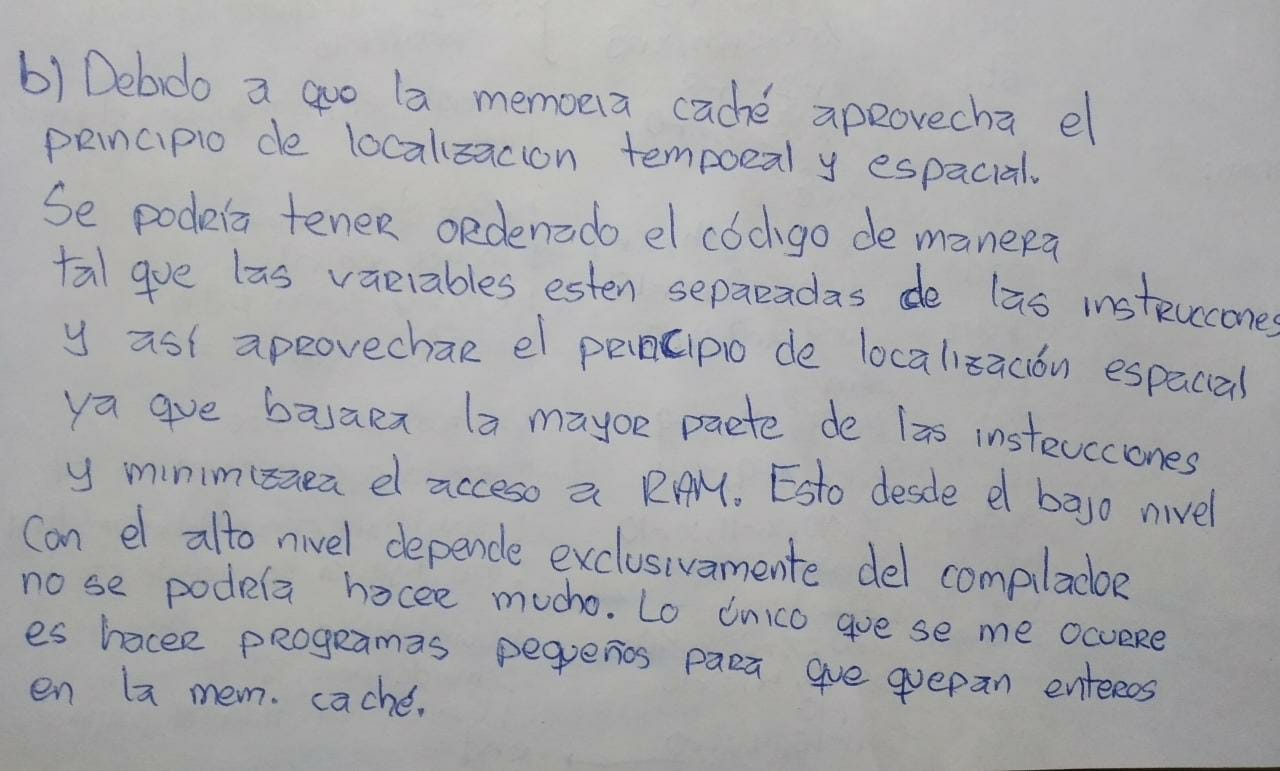 b) Debido a que la memoria caché aprovecha el
principio de localizacion temporal y espacial.
Se podría tener ordenado el código de manera
tal que las variables esten separadas de las instrucciones
y así aprovechar el principio de localización espacial
ya que bajara la mayor parte de las instrucciones
y minimizara el acceso a RAM. Esto desde el bajo nivel
Con el alto nivel depende exclusivamente del compilador
no se podría hacer mucho. Lo único que se me ocurre
es hacer programas pequeños para que quepan enteros
en la mem. caché.